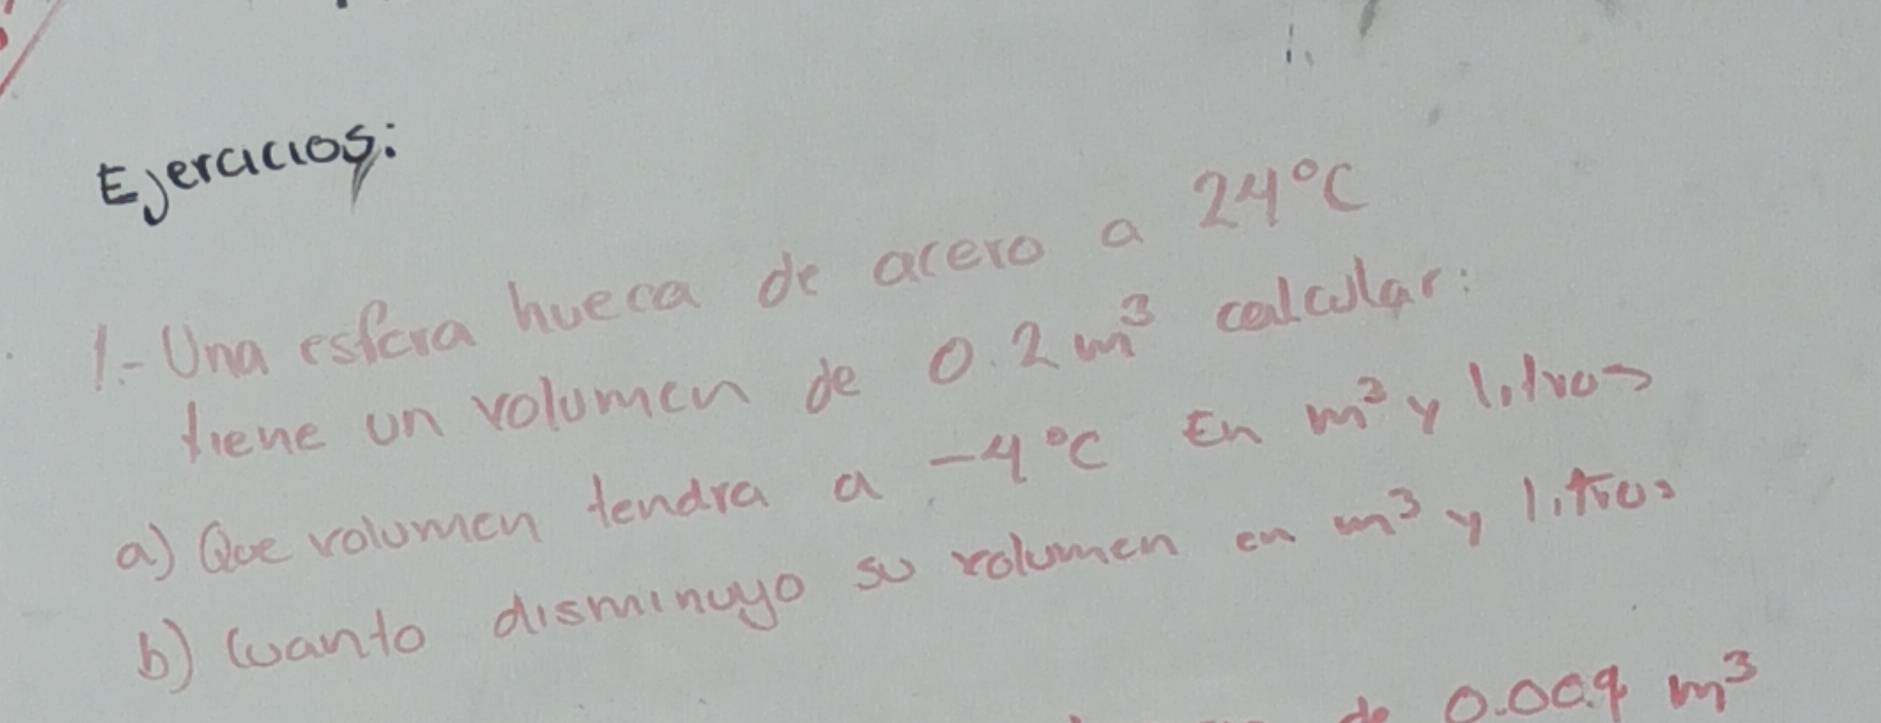 Ejercicios:
1.- Una esfera hueca de acero a 24°C
tiene un volumen de 0.2 m³ calcular:
a) Que volumen tendra a -4°C En m³ y litros
b) Cuanto disminuyo su volumen en m³ y litros
de 0.009 m³